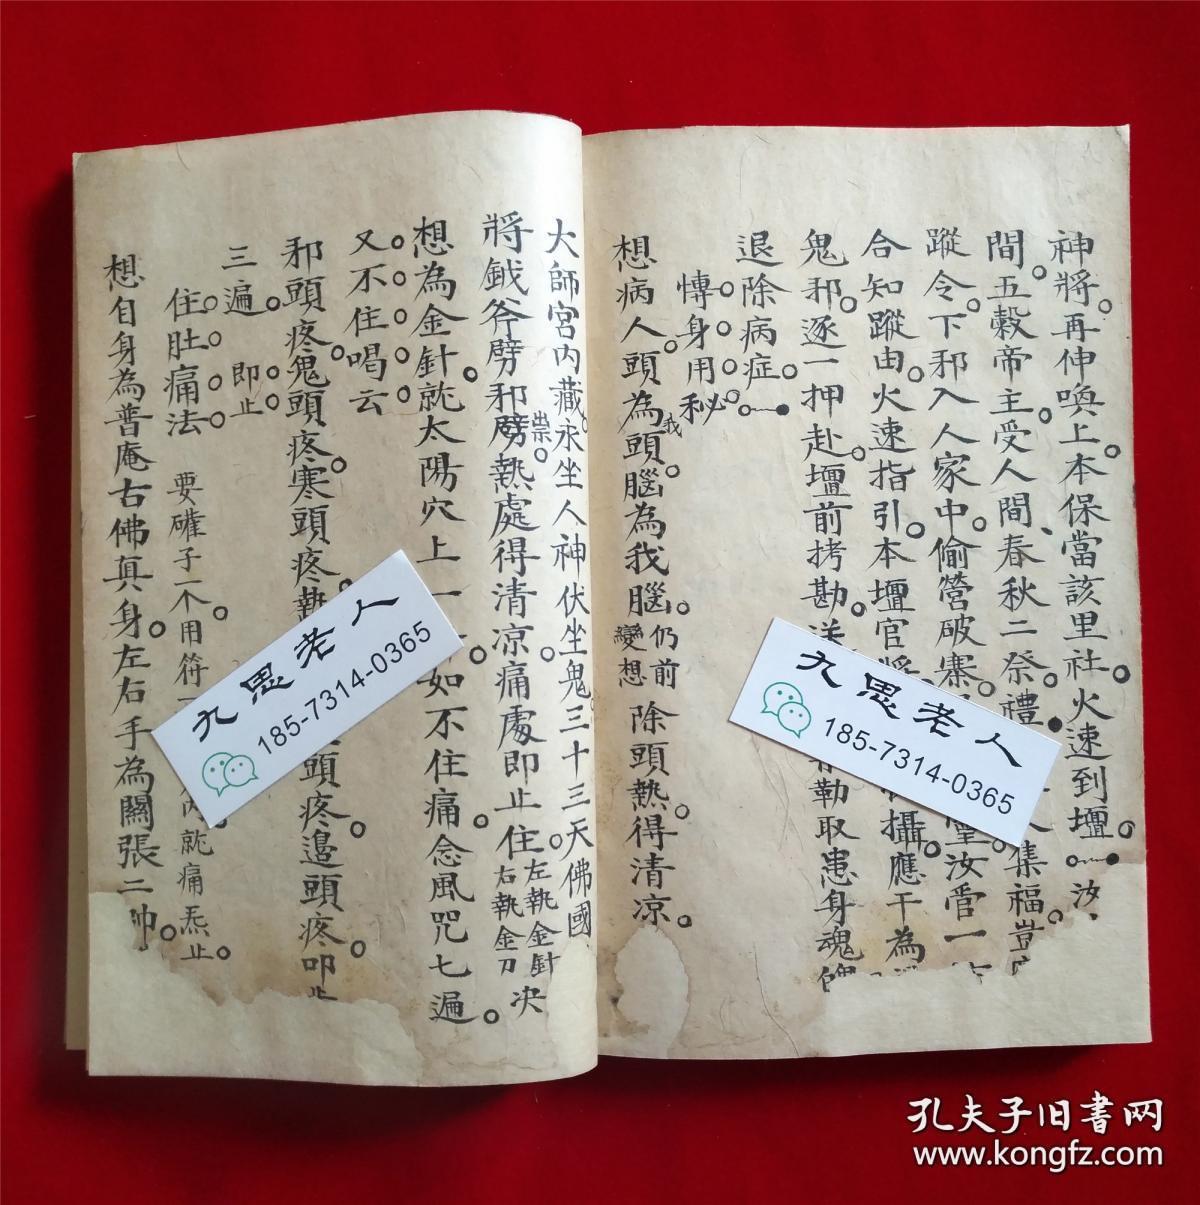 神將再伸喚上本保當該里社火速到壇汝
間五穀帝主受人間春秋二祭禮集福豈
蹤令下邪入人家中偷營破寨汝當一
合知蹤由火速指引本壇官將攝應干為
鬼邪逐一押赴壇前拷勘勒取患身魂
退除病症
慱身用秘
想病人頭為我頭腦為我腦仍前變想除頭熱得清涼
大師宮內藏永坐人神伏坐鬼三十三天佛國
將鉞斧劈邪祟劈熱處得清涼痛處即止住左執金針右執金刀决
想為金針就太陽穴上一如不住痛念風咒七遍
又不住喝云
邪頭疼鬼頭疼寒頭疼熱頭疼邉頭疼叩
三遍 即止
住肚痛法 要礶子一个用符就痛炁止
想自身為普庵古佛真身左右手為關張二帥
九思老人
185-7314-0365
九思老人
185-7314-0365
孔夫子旧書网
www.kongfz.com